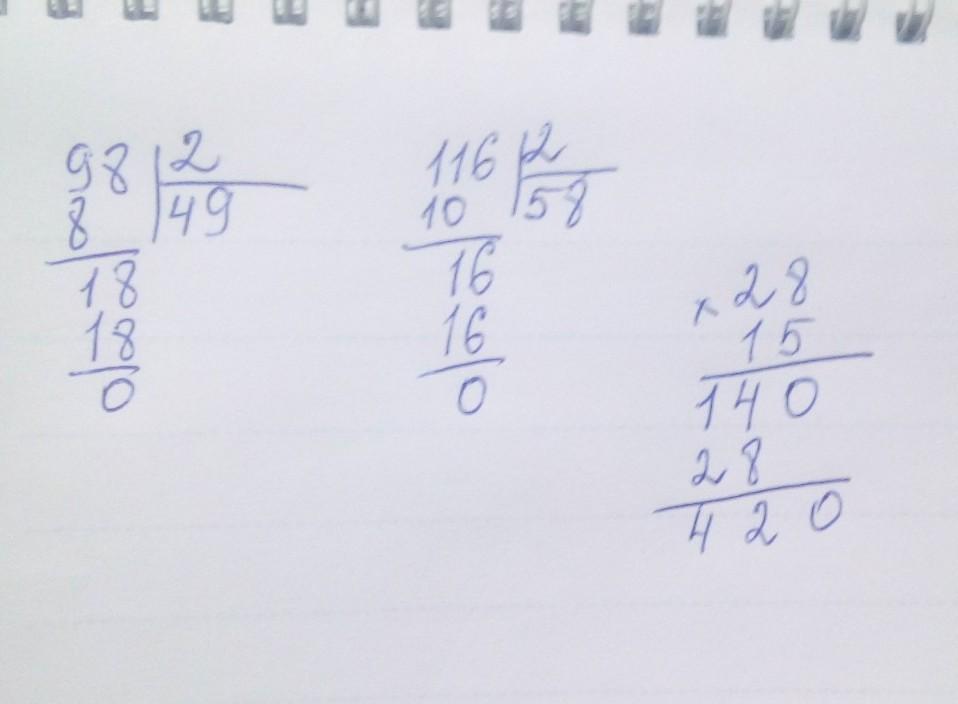 98 | 2
8 | 49
18
18
0
116 | 2
10 | 58
16
16
0
× 28
15
140
28
420